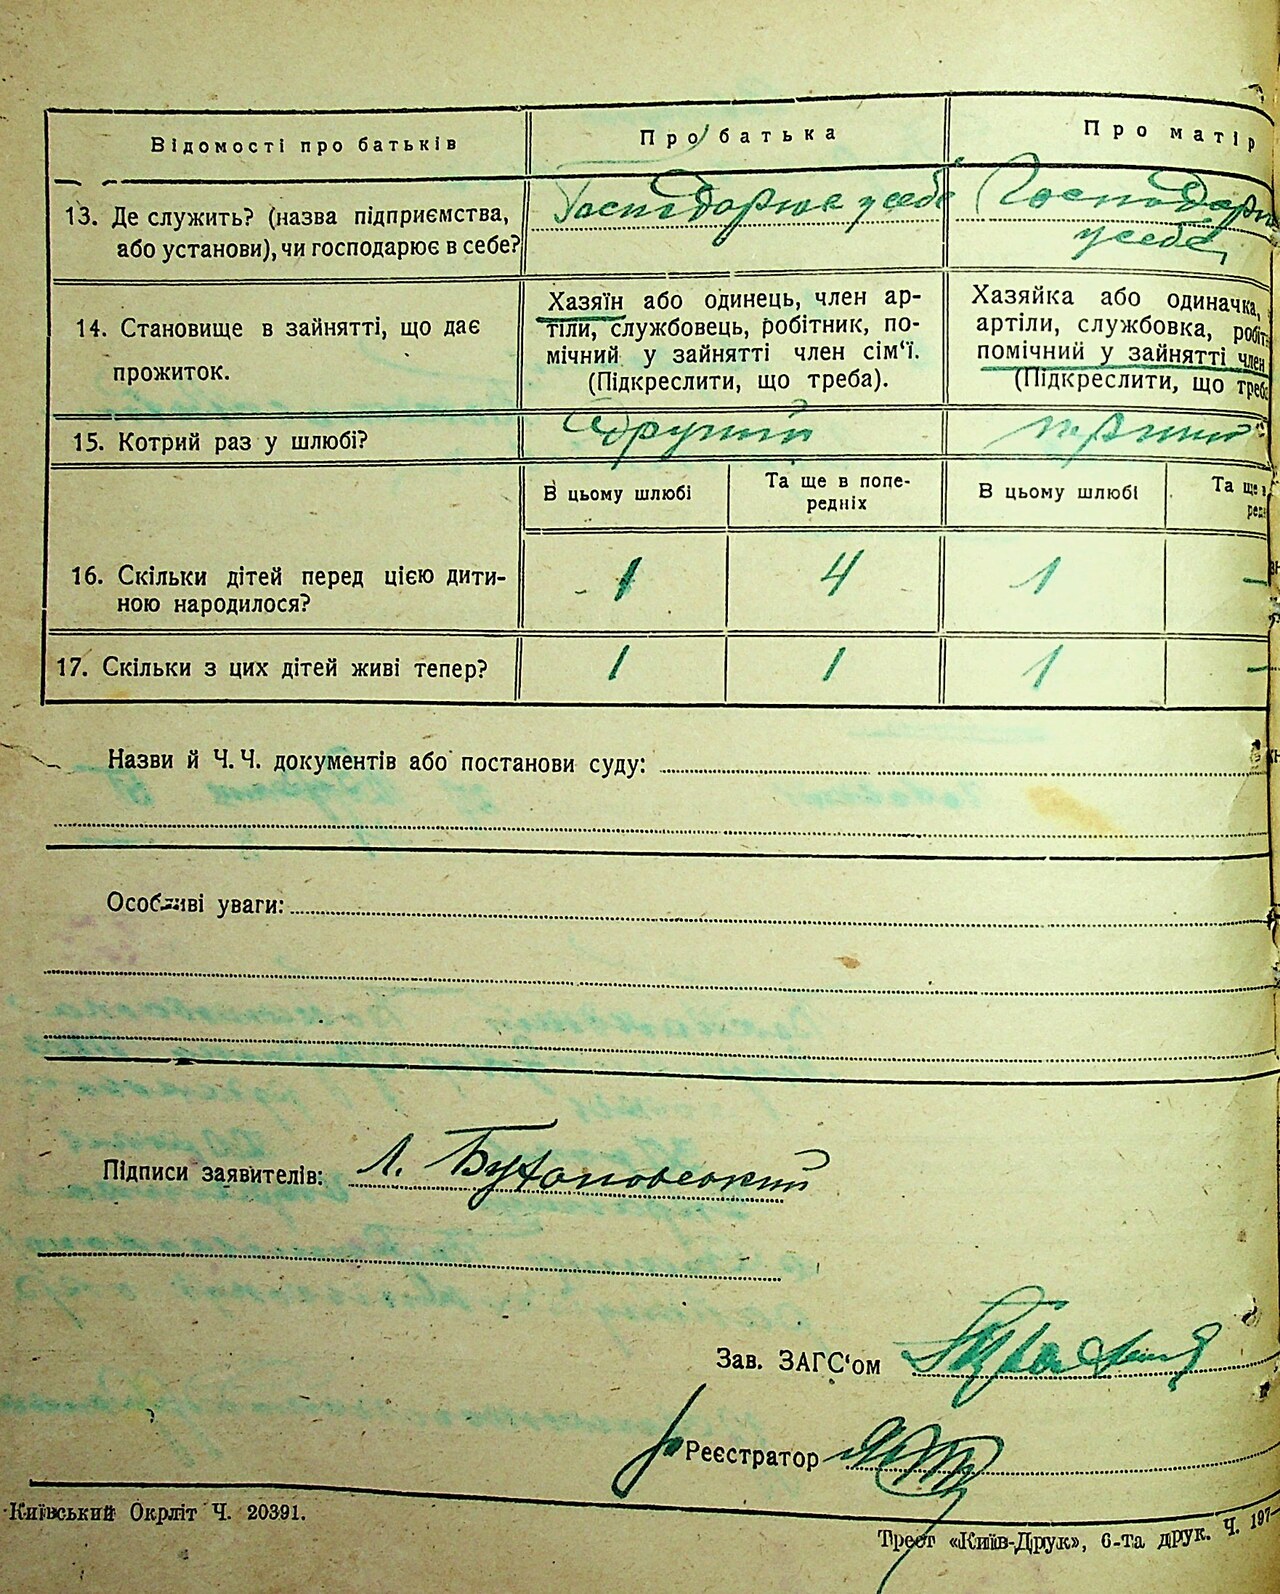 Відомості про батьків
Про батька
Про матір
13. Де служить? (назва підприємства,
або установи), чи господарює в себе?
Господарює у себе
Господарює
у себе
14. Становище в зайнятті, що дає
прожиток.
Хазяїн або одинець, член ар-
тіли, службовець, робітник, по-
мічний у зайнятті член сім‘ї.
(Підкреслити, що треба).
Хазяйка або одиначка,
артіли, службовка, робіт
помічний у зайнятті член
(Підкреслити, що треба
15. Котрий раз у шлюбі?
другий
перший
В цьому шлюбі
Та ще в попе-
редніх
В цьому шлюбі
Та ще в
ред
16. Скільки дітей перед цією дити-
ною народилося?
1
4
1
—
17. Скільки з цих дітей живі тепер?
1
1
1
—
Назви й Ч. Ч. документів або постанови суду:
Особливі уваги:
Підписи заявителів: Л.
Зав. ЗАГС‘ом
Реєстратор
Київський Окрліт Ч. 20391.
Трест «Київ-Друк», 6-та друк. Ч. 197